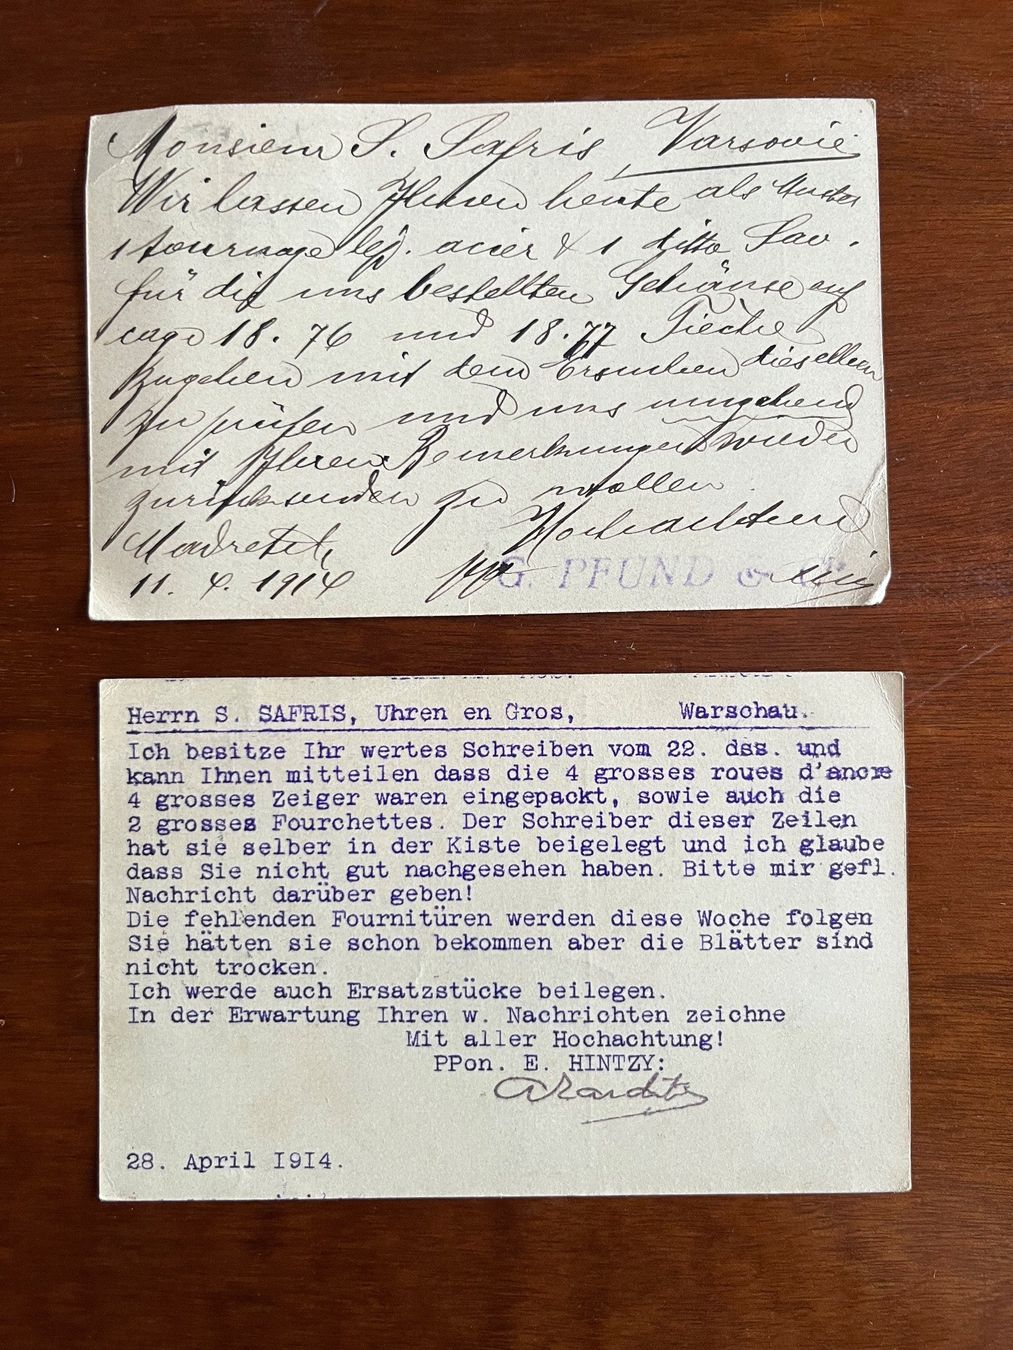 Monsieur S. Safris, Varsovie
Wir lassen Ihnen heute als Muster
1 tournage lép. acier & 1 ditto Sav.
für die uns bestellten Gehäuse auf
cage 18.76 und 18.77 Tièche
zugehen mit dem Ersuchen dieselben
zu prüfen und uns umgehend
mit Ihren Bemerkungen wieder
zurücksenden zu wollen.
Hochachtend
Madretsch,
11. 4. 1914 pp G. PFUND &
Herrn S. SAFRIS, Uhren en Gros, Warschau.
Ich besitze Ihr wertes Schreiben vom 22. dss. und
kann Ihnen mitteilen dass die 4 grosses roues d'ancre
4 grosses Zeiger waren eingepackt, sowie auch die
2 grosses Fourchettes. Der Schreiber dieser Zeilen
hat sie selber in der Kiste beigelegt und ich glaube
dass Sie nicht gut nachgesehen haben. Bitte mir gefl.
Nachricht darüber geben!
Die fehlenden Fournitüren werden diese Woche folgen
Sie hätten sie schon bekommen aber die Blätter sind
nicht trocken.
Ich werde auch Ersatzstücke beilegen.
In der Erwartung Ihren w. Nachrichten zeichne
Mit aller Hochachtung!
PPon. E. HINTZY:
28. April 1914.